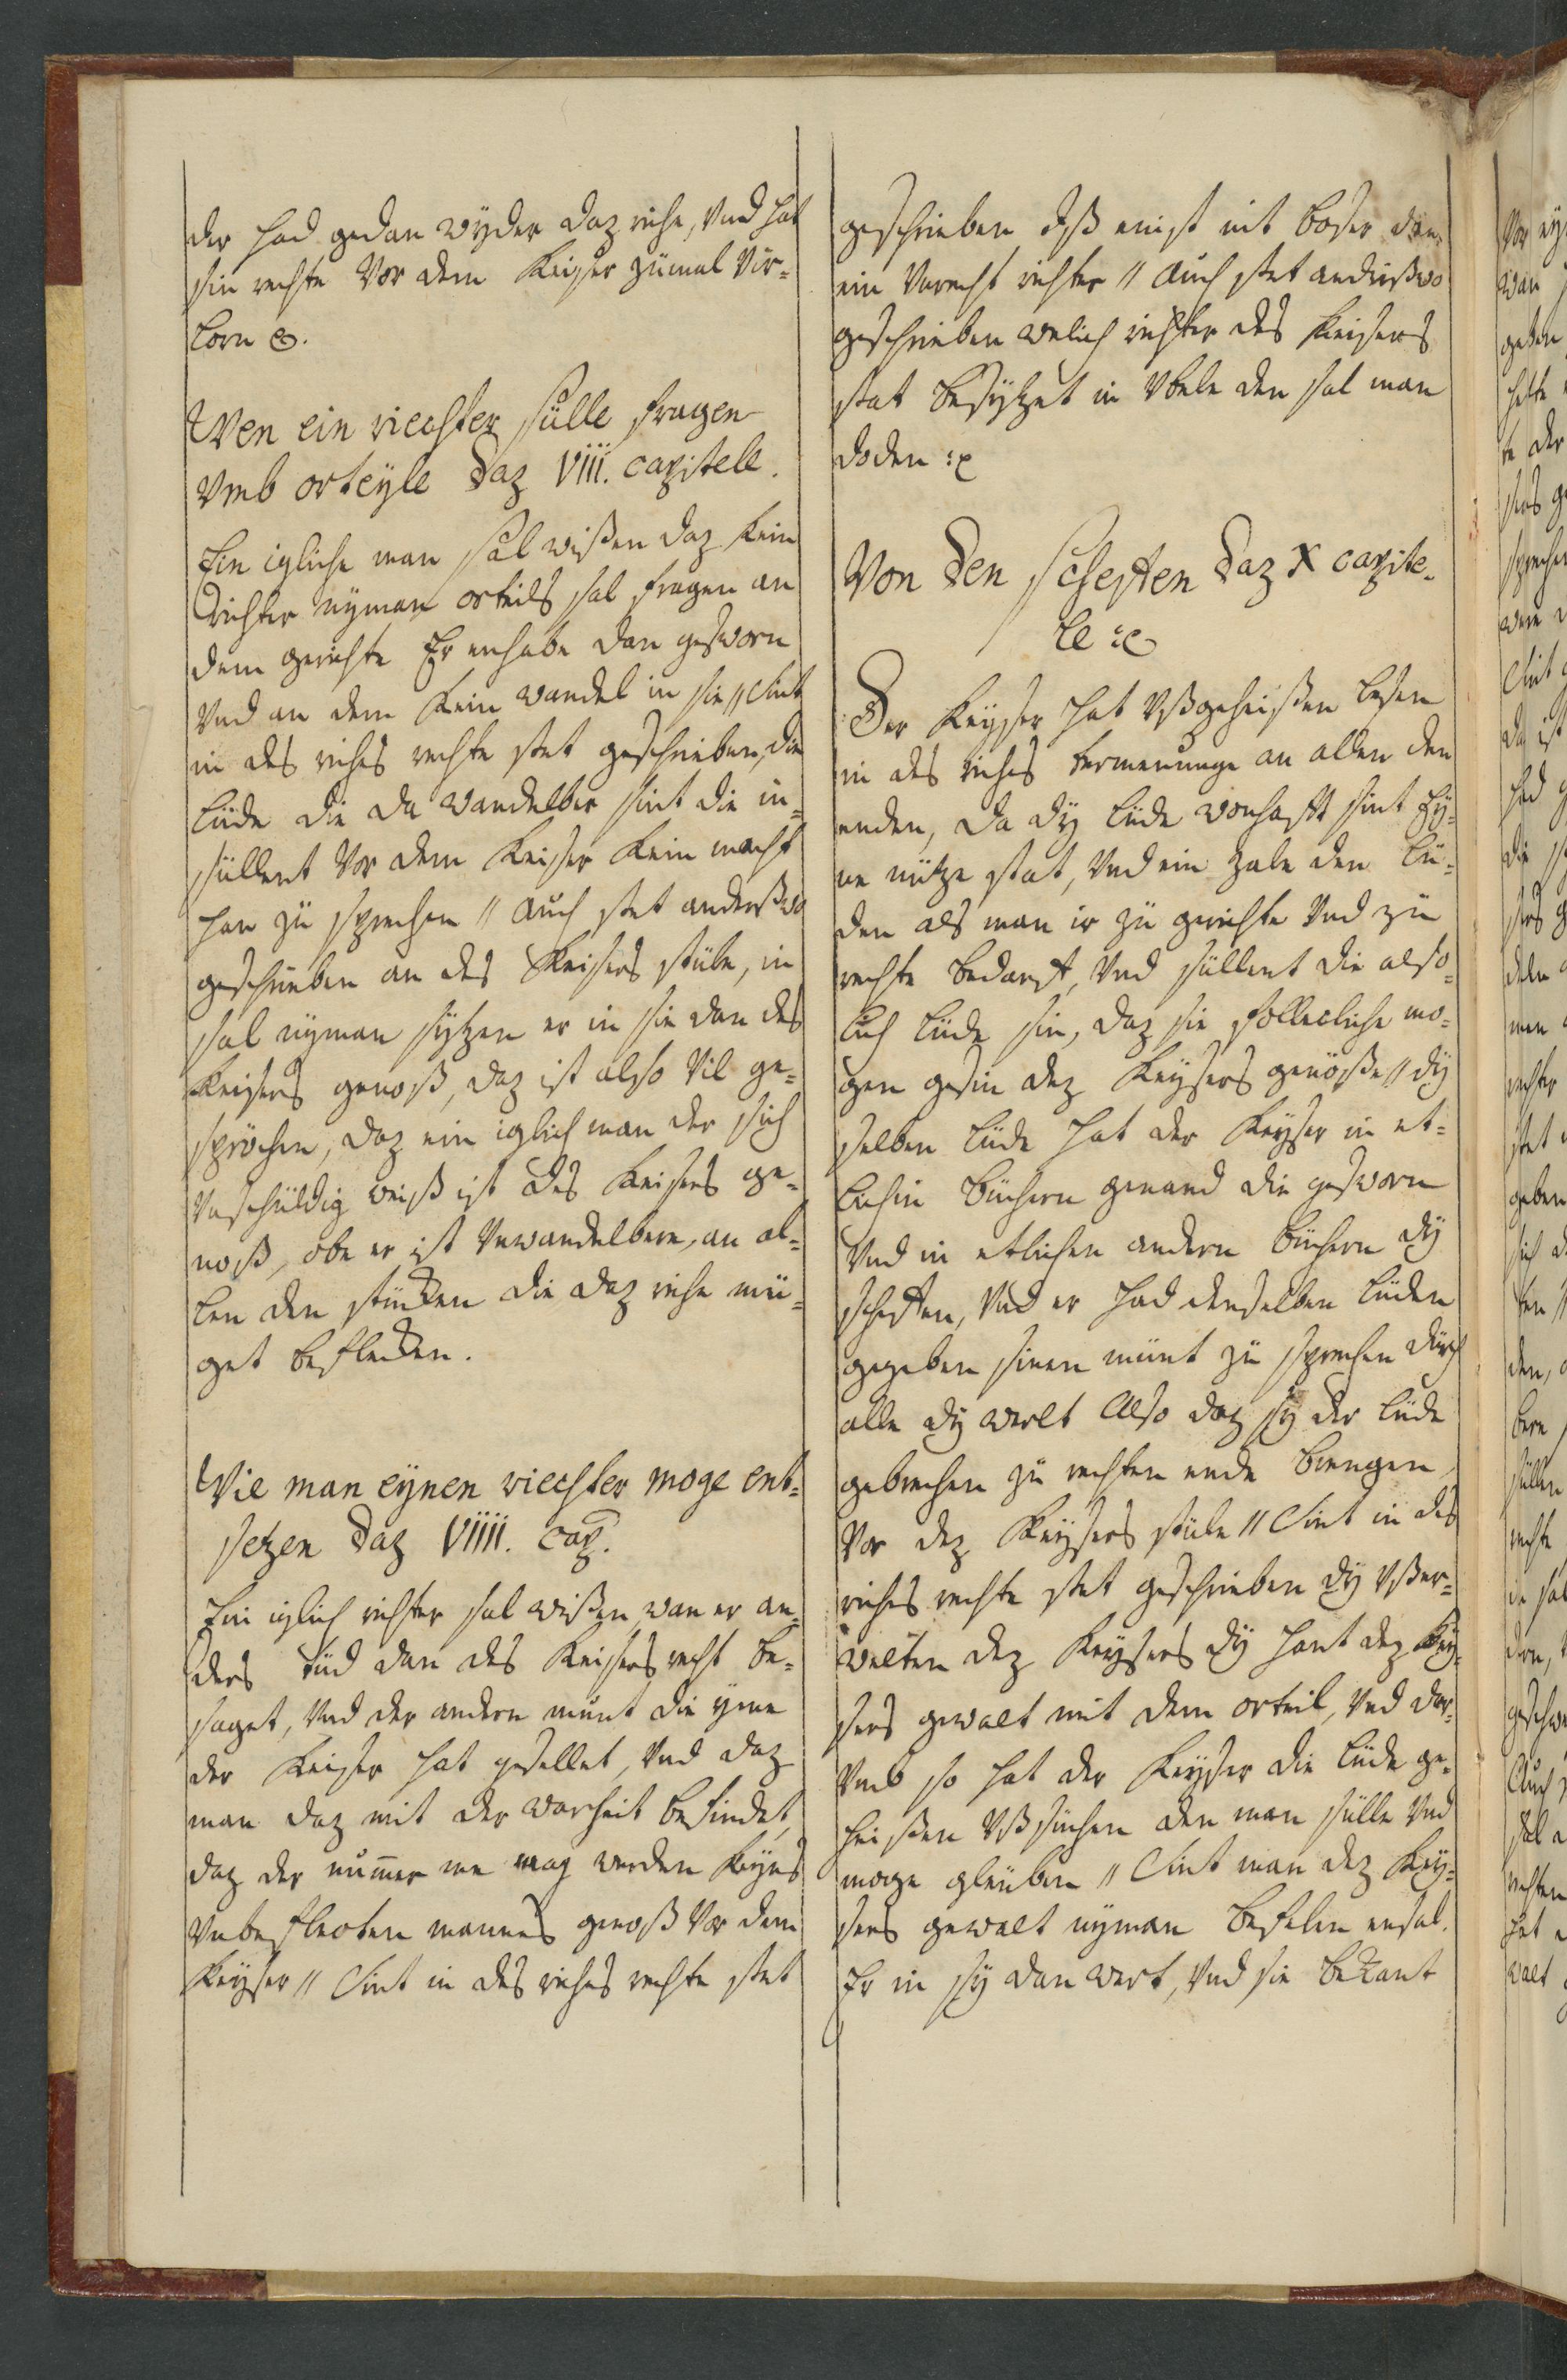 der had gedan wyder daz riche, Vnd hat
sin rechte Vor dem Keiser zümal Vir-
lorn ꝛc.
Wen ein riechter sülle fragen
Vmb orteyle Daz VIII. capitell.
Ein igliche man sal wißen daz kein
richter nyman orteils sal fragen an
dem gerichte Er enhabe dan gesworn
Vnd an dem kein wandel in sie // Sint
in des riches rechte stet geschrieben, die
lüde die da wandelber sint die in-
süllent Vor dem Keiser kein macht
han zü sprechen // Auch stet anderßwo
geschrieben an des Keisers stüle, in
sal nyman sytzen er in sie dan des
Keisers genoß, daz ist also Vil ge-
sprochen, daz ein iglich man der sich
Vnschüldig weiß ist des Keisers ge-
noß, obe er ist Vnwandelbere, an al-
len den stücken die daz riche mü-
get beflecken.
Wie man eynen riechter moge ent-
setzen Daz VIIII. cap.
Ein iglich richter sal wißen wan er an-
ders düd dan des Keisers recht be-
saget, Vnd der andern münt die yme
der Keiser hat gesellet, Vnd daz
man daz mit der warheit befindet,
daz der nummer me mag werden keyns
Vnbeflecten mannes genoß Vor dem
Keyser // Sint in des riches rechte stet
geschrieben Ißt enist nit boser dan
ein Vnrecht richter // Auch stet anderßwo
geschrieben welich richter des Keisers
stat besytzet in Vbele den sal man
doden ꝛc
Von den scheffen Daz X capite-
le ꝛc
Der Keyser hat Vßgeheißen lesen
in des riches termenunge an allen den
enden, da dy lüde wonhafft sint Ey-
ne nütze stat, Vnd ein zale den lü-
den als man ir zü gerichte Vnd zü
rechte bedarff, Vnd süllent die also-
lich lüde sin, daz sie follecliche mo-
gen gesin dez Keysers genoße // dy
selben lüde hat der Keyser in et-
lichin büchern genand die gesworn
Vnd in etlichen andern büchern dy
scheffen, Vnd er had denselben lüden
gegeben sinen münt zü sprechen dürch
alle dy werlt Also daz sy der lüde
gebrechen zü rechten ende brengen
Vor dez Keysers stüle // Sint in des
riches rechte stet geschrieben dy Vßer-
welten dez Keysers dy hant dez Key-
sers gewalt mit dem orteil, Vnd dar-
Vmb so hat der Keyser die lüde ge-
heißen Vßsüchen den man sülle Vnd
moge gleüben // Sint man dez Key-
sers gewalt nyman befelen ensal.
Er in sy dan wert, Vnd sie bekant